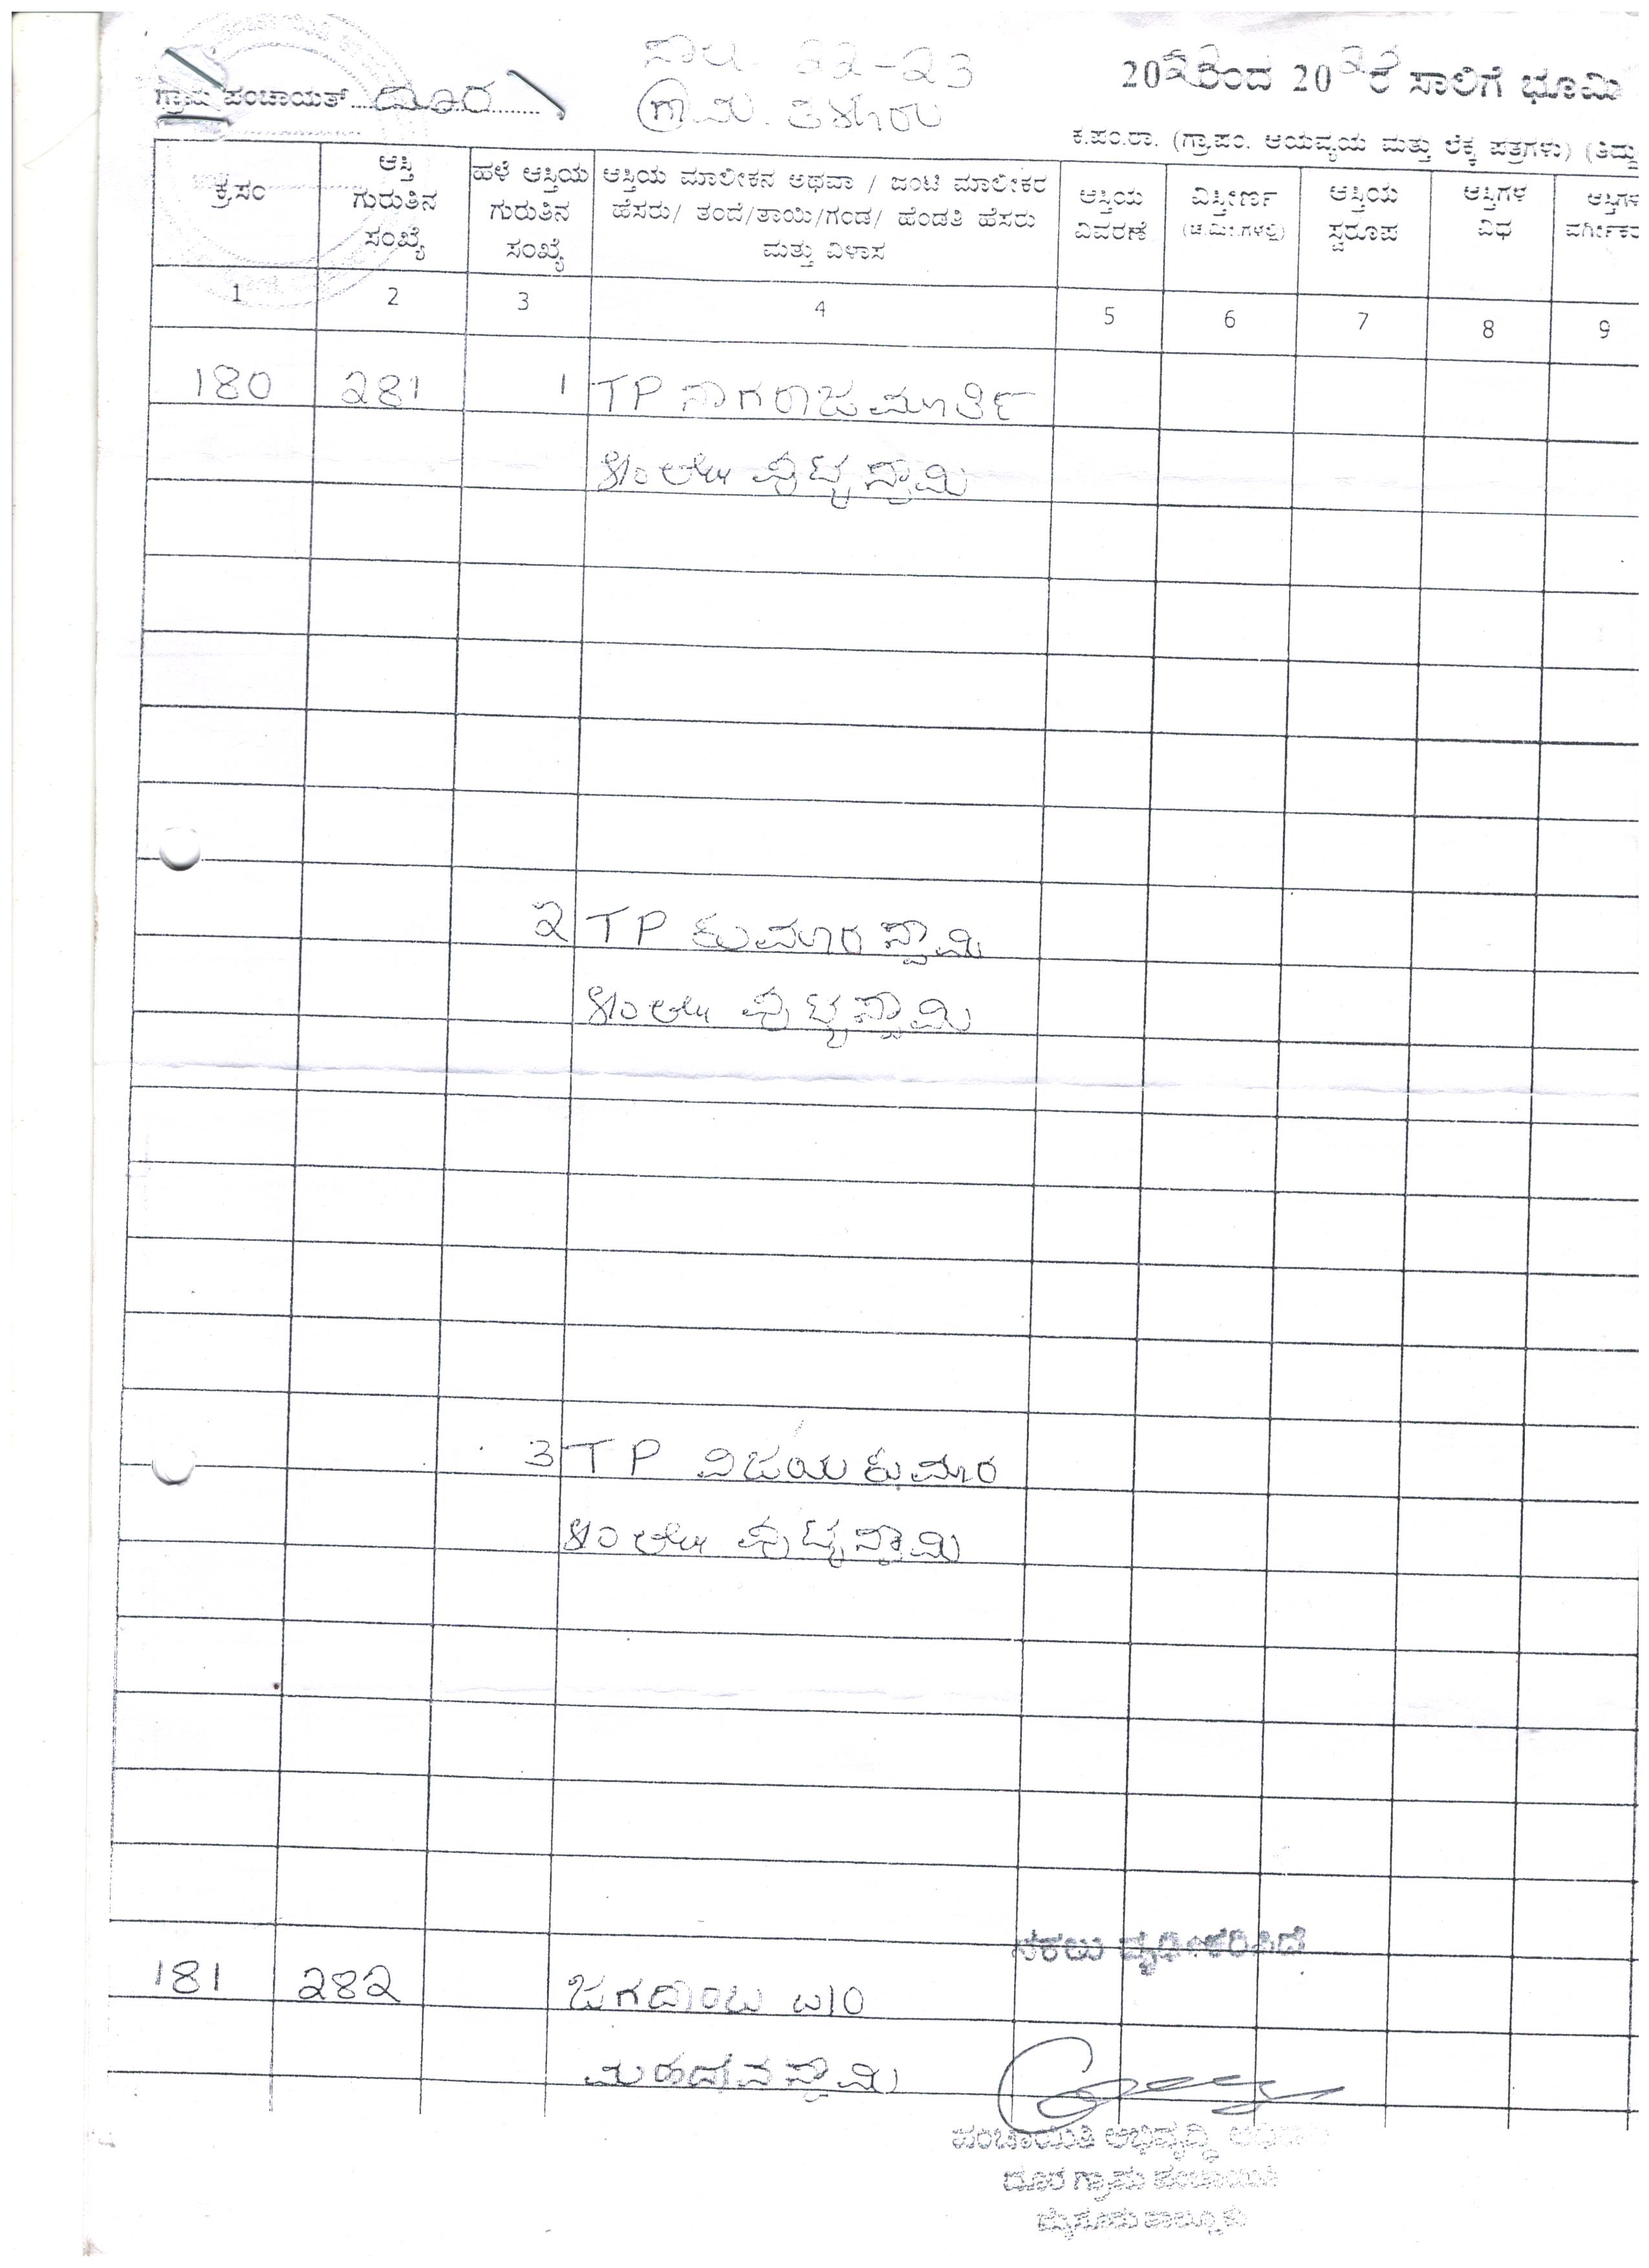 ಸಾಲು 22-23
ಗ್ರಾಮ ಪಂಚಾಯತ್ ದೂರ
2022ರಿಂದ 2023ರ ಸಾಲಿಗೆ ಭೂಮಿ
ಗ್ರಾ.ಮ. ತಳೂರು
ಕ.ಪಂ.ರಾ. (ಗ್ರಾಪಂ. ಆಯವ್ಯಯ ಮತ್ತು ಲೆಕ್ಕ ಪತ್ರಗಳು) (ತಿದ್ದು
ಕ್ರ.ಸಂ
ಆಸ್ತಿ ಗುರುತಿನ ಸಂಖ್ಯೆ
ಹಳೆ ಆಸ್ತಿಯ ಗುರುತಿನ ಸಂಖ್ಯೆ
ಆಸ್ತಿಯ ಮಾಲೀಕನ ಅಥವಾ / ಜಂಟಿ ಮಾಲೀಕರ
ಹೆಸರು/ ತಂದೆ/ತಾಯಿ/ಗಂಡ/ ಹೆಂಡತಿ ಹೆಸರು
ಮತ್ತು ವಿಳಾಸ
ಆಸ್ತಿಯ ವಿವರಣೆ
ವಿಸ್ತೀರ್ಣ (ಚ.ಮೀ.ಗಳಲ್ಲಿ)
ಆಸ್ತಿಯ ಸ್ವರೂಪ
ಆಸ್ತಿಗಳ ವಿಧ
ಆಸ್ತಿಗಳ ವರ್ಗೀಕರ
1 2 3 4 5 6 7 8 9
180 281 1 TP ನಾಗರಾಜಮೂರ್ತಿ
S/o ಲೇ|| ಪುಟ್ಟಸ್ವಾಮಿ
2 TP ಕುಮಾರಸ್ವಾಮಿ
S/o ಲೇ|| ಪುಟ್ಟಸ್ವಾಮಿ
3 TP ವಿಜಯಕುಮಾರ
S/o ಲೇ|| ಪುಟ್ಟಸ್ವಾಮಿ
ನಕಲು ದೃಢೀಕರಿಸಿದೆ
181 282 ಜಗದಾಂಬ W/O
ಮಹದೇವಸ್ವಾಮಿ
ಪಂಚಾಯಿತಿ ಅಭಿವೃದ್ಧಿ
ದೂರ ಗ್ರಾಮ ಪಂಚಾಯಿತಿ
ಮೈಸೂರು ತಾಲ್ಲೂಕು